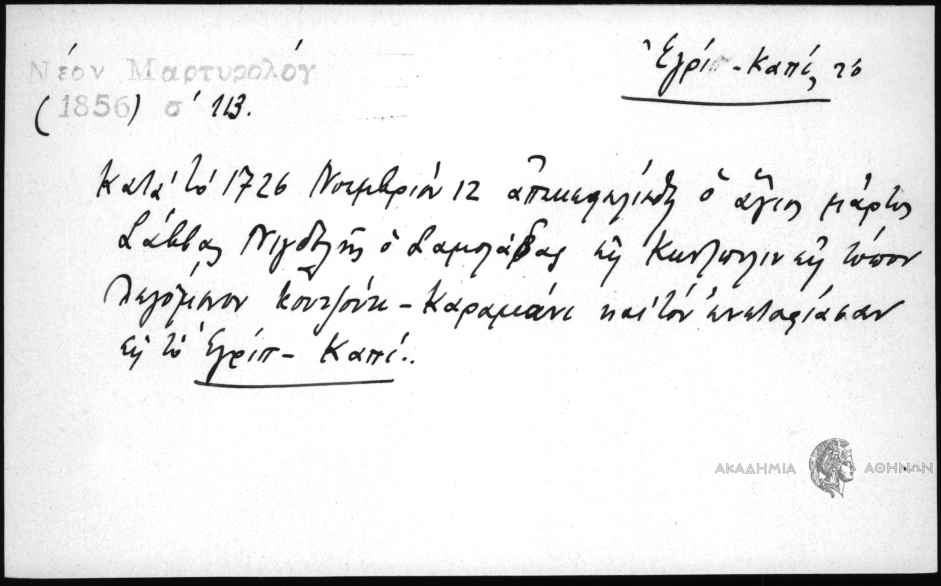 Νέον Μαρτυρολόγ
(1856) σ' 113.
Ἐγρίπ-Καπί, το
Κατά τό 1726 Νοεμβρίου 12 ἀπεκεφαλίσθη ὁ ἅγιος μάρτυς
Σάββας Νιγδελῆς ὁ Σαμολάδας εἰς Κων/πολιν εἰς τόπον
λεγόμενον Κουτζούκ-Καραμάνι καί τόν ἐνεταφίασαν
εἰς τό Ἐγρίπ-Καπί..
ΑΚΑΔΗΜΙΑ ΑΘΗΝΩΝ